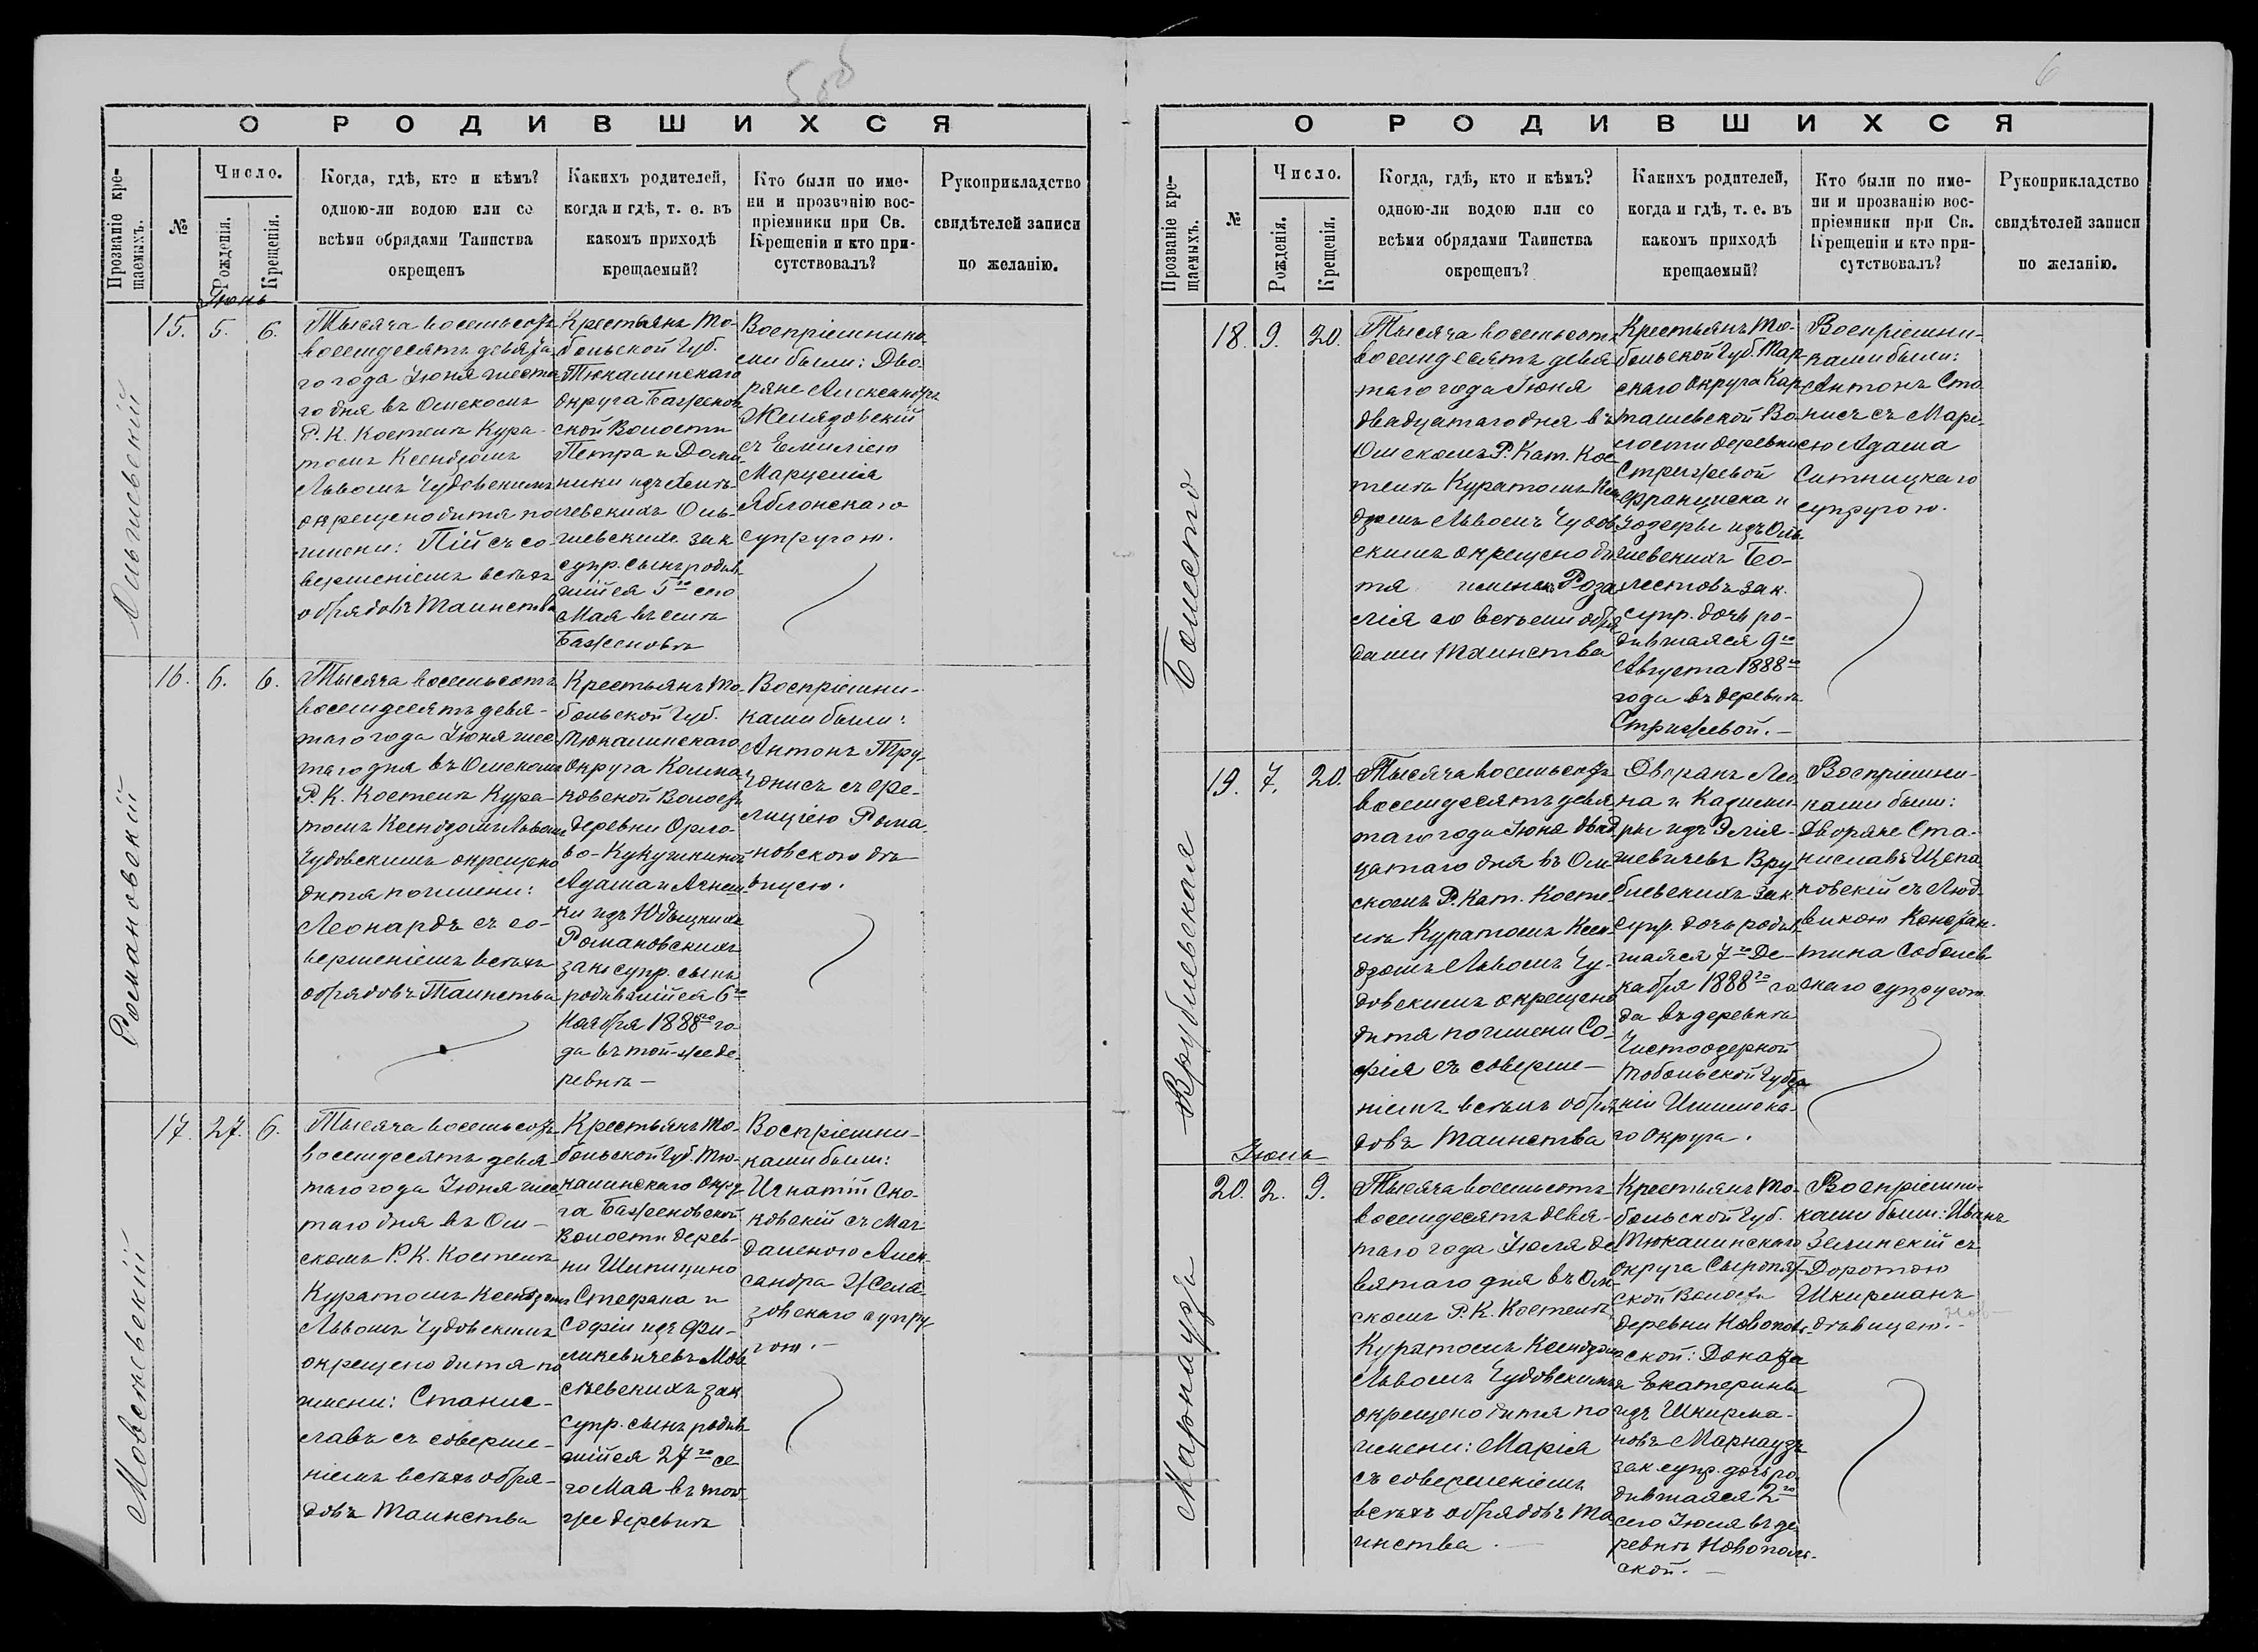 5об
О РОДИВШИХСЯ
Прозваніе кре-
щаемыхъ.
№
Число.
Рожденія.
Крещенія.
Когда, гдѣ, кто и кѣмъ?
одною-ли водою или со
всѣми обрядами Таинства
окрещенъ
Какихъ родителей,
когда и гдѣ, т. е. въ
какомъ приходѣ
крещаемый?
Кто были по име-
ни и прозванію вос-
пріемники при Св.
Крещеніи и кто при-
сутствовалъ?
Рукоприкладство
свидѣтелей записи
по желанію.
Іюнь
Ольшевскій
15.
5.
6.
Тысяча восемьсотъ
восемдесятъ девята
го года Іюня шеста
го дня въ Омскомъ
Р. К. Костелѣ Кура-
томъ Ксендзомъ
Львомъ Чудовскимъ
окрещено дитя по
имени: Пій съ со-
вершеніемъ всѣхъ
обрядовъ Таинства
Крестьянъ То-
больской Губ.
Тюкалинскаго
Округа Баженов
ской Волости
Петра и Доми-
ники изъ
левскихъ Оль-
шевскихъ зак
супр. сынъ родив
шійся 5го сего
Мая въ селѣ
Баженовѣ
Воспріемника
ми были: Дво-
ряне Александръ
Желядовскій
съ Емиліею
Марцелія
Яблонскаго
супругою.
Романовскій
16.
6.
6.
Тысяча восемьсотъ
восемдесятъ девя-
таго года Іюня шес
таго дня въ Омскомъ
Р. К. Костелѣ Кура-
томъ Ксендзомъ Львомъ
Чудовскимъ окрещено
дитя по имени:
Леонардъ съ со-
вершеніемъ всѣхъ
обрядовъ Таинства
Крестьянъ То-
больской Губ.
Тюкалинскаго
Округа Колма-
ковской Волости
деревни Орло-
во-Кукушкиной
Адама и Агнеш-
ки изъ Юдыцкихъ
Романовскихъ
зак. супр. сынъ
родившійся 6го
Ноября 1888го го-
да въ той-же де-
ревнѣ —
Воспріемни-
ками были:
Антонъ Тру-
чонисъ съ Фе-
лиціею Рома-
новскою дѣ-
вицею.
Мовсѣевскій
17.
27.
6.
Тысяча восемьсотъ
восемдесятъ девя-
таго года Іюня шес
таго дня въ Ом-
скомъ Р. К. Костелѣ
Куратомъ Ксендзомъ
Львомъ Чудовскимъ
окрещено дитя по
имени: Станис-
лавъ съ соверше-
ніемъ всѣхъ обря-
довъ Таинства
Крестьянъ То-
больской Губ. Тю-
калинскаго Окру-
га Баженовской
Волости дерев-
ни Шипицино
Стефана и
Софіи изъ Фи-
ликевичевъ Мов
сѣевскихъ зак
супр. сынъ родив
шійся 27го се
го Мая въ той-
же деревнѣ
Воспріемни-
ками были:
Игнатій Сно-
ковскій съ Маг
даленою Алек-
сандра Желя-
зовскаго супру-
гою. —
6
О РОДИВШИХСЯ
Прозваніе кре-
щаемыхъ.
№
Число.
Рожденія.
Крещенія.
Когда, гдѣ, кто и кѣмъ?
одною-ли водою или со
всѣми обрядами Таинства
окрещенъ?
Какихъ родителей,
когда и гдѣ, т. е. въ
какомъ приходѣ
крещаемый?
Кто были по име-
ни и прозванію вос-
пріемники при Св.
Крещеніи и кто при-
сутствовалъ?
Рукоприкладство
свидѣтелей записи
по желанію.
Болесто
18.
9.
20.
Тысяча восемьсотъ
восемдесятъ девя
таго года Іюня
двадцатаго дня въ
Омскомъ Р. Кат. Кос
телѣ Куратомъ Ксен
дзомъ Львомъ Чудов
скимъ окрещено ди
тя именемъ Роза
лія со всѣми обря
дами Таинства
Крестьянъ То-
больской Губ. Тар
скаго Округа Кар
ташевской Во-
лости деревни
Стрижевой
Франциска и
Іозефы изъ Оль
шевскихъ Бо-
лестовъ зак.
супр. дочь ро-
дившаяся 9го
Августа 1888го
года въ деревнѣ
Стрижевой. —
Воспріемни-
ками были:
Антонъ Ста
нисъ съ Марі-
ею Адама
Ситницкаго
супругою.
Врублевская
19.
7.
20.
Тысяча восемьсотъ
восемдесятъ девя
таго года Іюня двад
цатаго дня въ Ом-
скомъ Р. Кат. Косте
лѣ Куратомъ Ксен-
дзомъ Львомъ Чу-
довскимъ окрещено
дитя по имени Со-
фія съ соверше-
ніемъ всѣхъ обря
довъ Таинства
Дворянъ Лео
на и Казими-
ры изъ Элія-
шевичевъ Вру
блевскихъ зак.
супр. дочь родив
шаяся 7го Де-
кабря 1888го го
да въ деревнѣ
Чистоозерной
Тобольской Губер
ніи Ишимска-
го Округа.
Воспріемни-
ками были:
Дворяне Ста-
ниславъ Щепа
новскій съ Люд-
викою Констан-
тина Соболев
скаго супругою
Іюль
Марнаузъ
20.
2.
9.
Тысяча восемьсотъ
восемдесятъ девя-
таго года Іюля де
вятаго дня въ Ом-
скомъ Р. К. Костелѣ
Куратомъ Ксендзомъ
Львомъ Чудовскимъ
окрещено дитя по
имени: Марія
съ совершеніемъ
всѣхъ обрядовъ Та
инства.
Крестьянъ То-
больской Губ.
Тюкалинскаго
Округа Сыропят-
ской Волости
деревни Новополь-
ской: Доната
и Екатерины
изъ Шкирма-
новъ Марнаузъ
зак супр. дочь ро-
дившаяся 2го
сего Іюля въ де
ревнѣ Новополь-
ской. —
Воспріемни-
ками были: Иванъ
Зелинскій съ
Доротою
Шкирманъ
дѣвицею. —